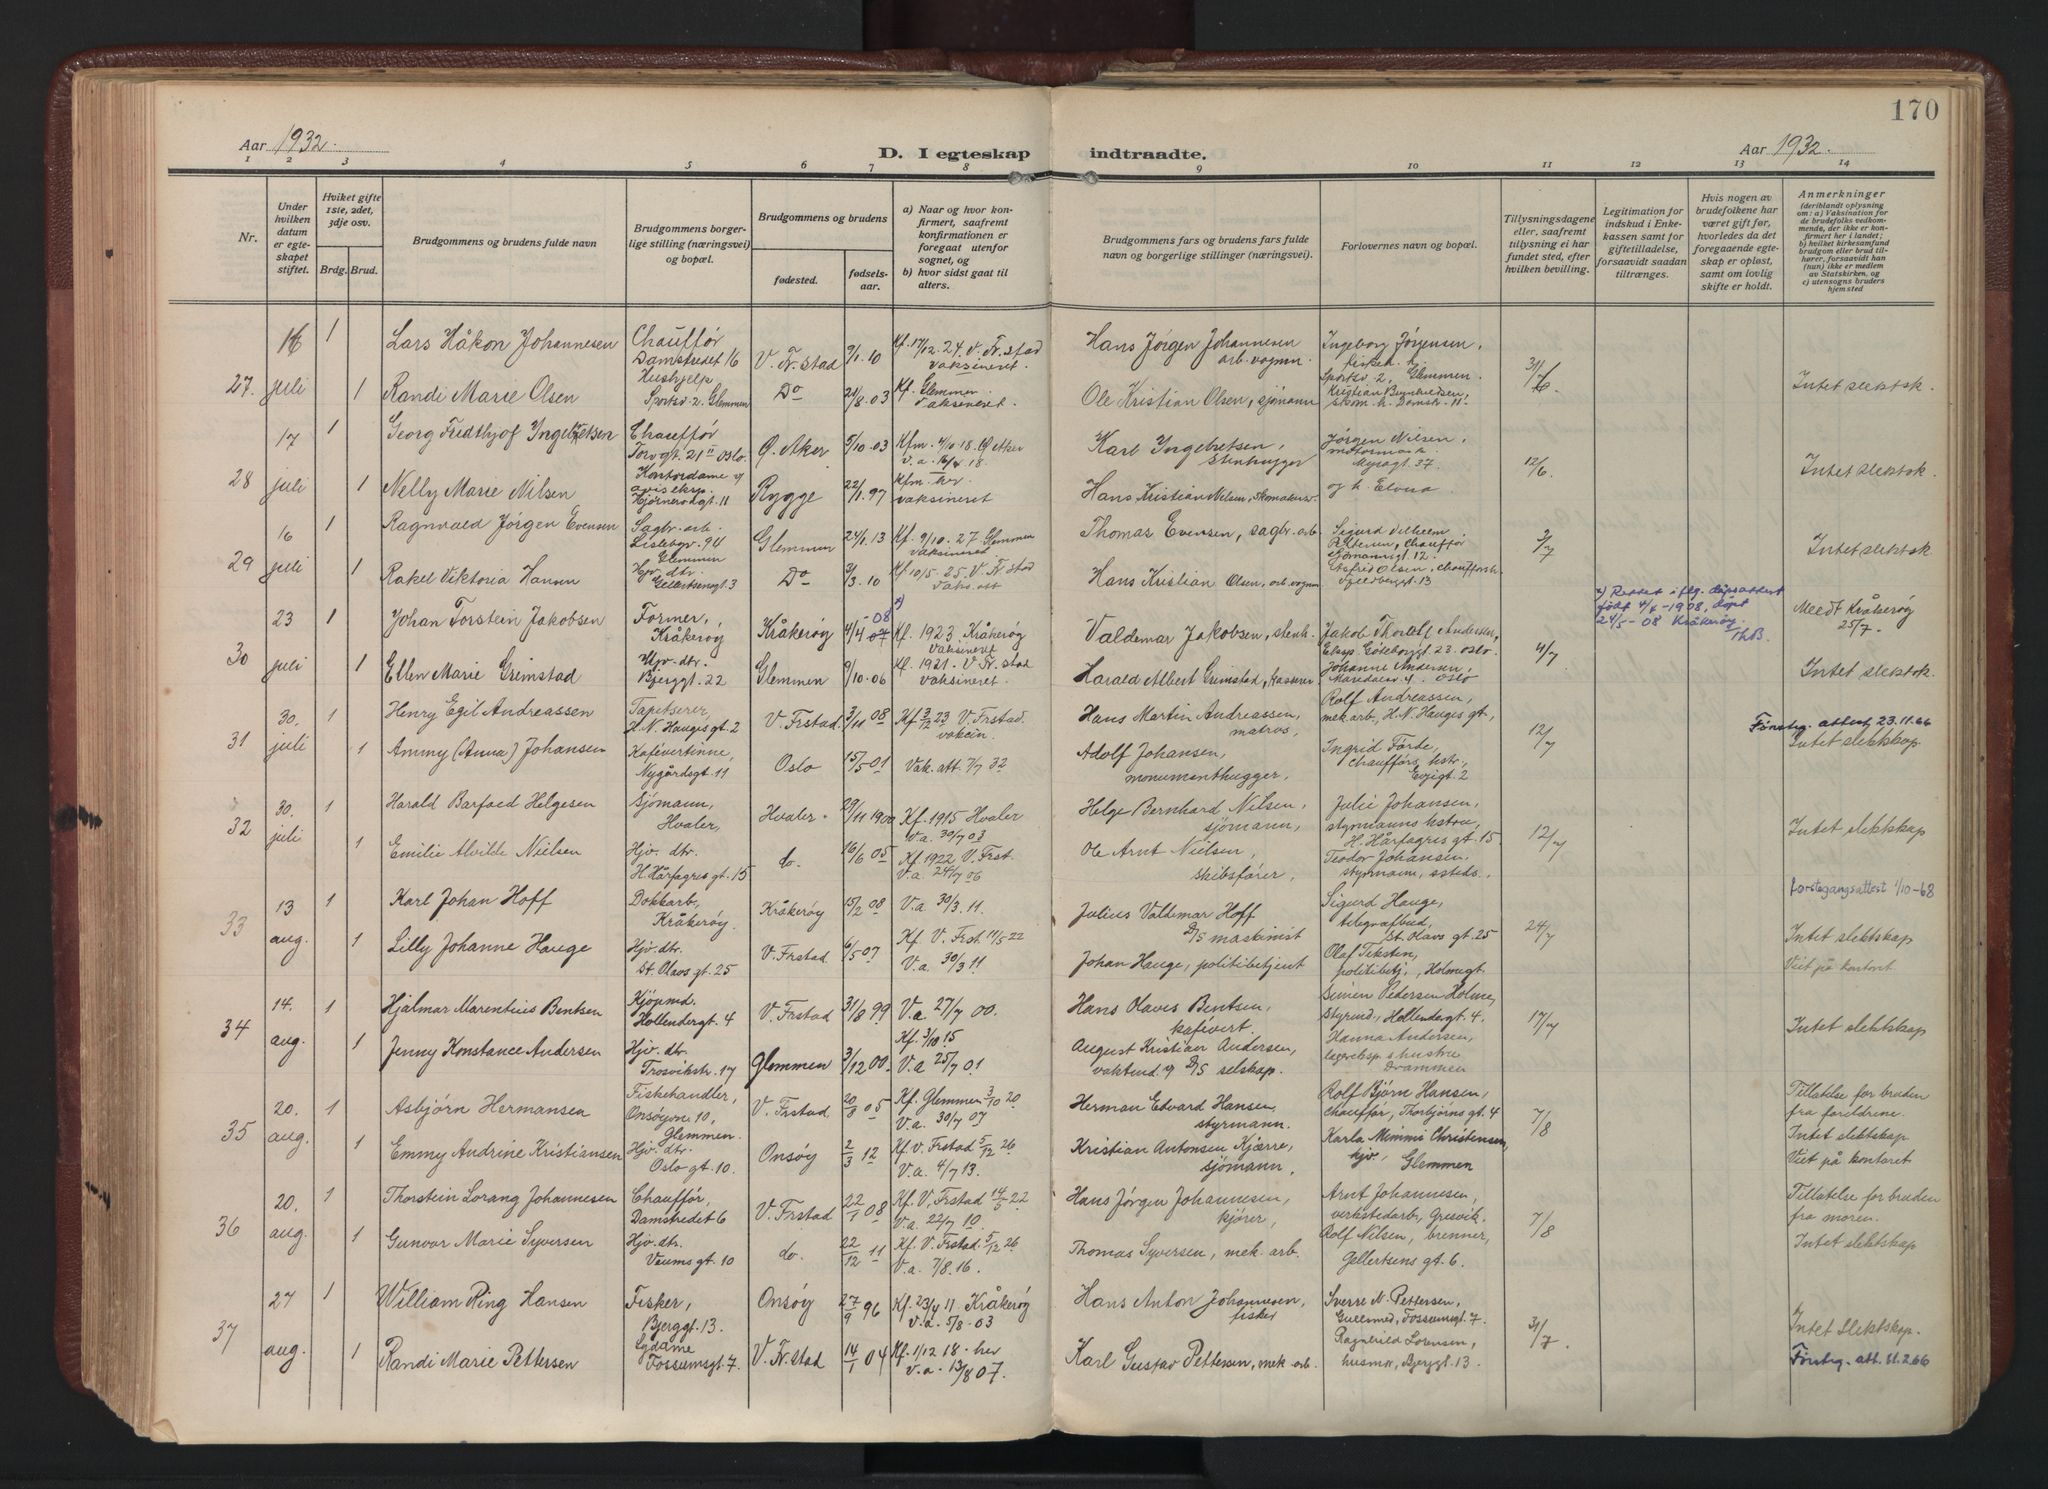 170
Aar 1932.
D. I egteskap indtraadte.
Aar 1932.
1 2 3 4 5 6 7 8 9 10 11 12 13 14
Nr.
Under hvilken datum er egteskapet stiftet.
Hviket gifte 1ste, 2det, 3dje osv.
Brdg. Brud.
Brudgommens og brudens fulde navn
Brudgommens borgerlige stilling (næringsvei) og bopæl.
Brudgommens og brudens
fødested.
fødselsaar.
a) Naar og hvor konfirmert, saafremt konfirmationen er foregaat utenfor sognet, og
b) hvor sidst gaat til alters.
Brudgommens fars og brudens fars fulde navn og borgerlige stillinger (næringsvei).
Forlovernes navn og bopæl.
Tillysningsdagene eller, saafremt tillysning ei har fundet sted, efter hvilken bevilling.
Legitimation for indskud i Enkekassen samt for giftetilladelse, forsaavidt saadan tiltrænges.
Hvis nogen av brudefolkene har været gift før, hvorledes da det foregaaende egteskap er opløst, samt om lovlig skifte er holdt.
Anmerkninger
(deriblandt oplysning om: a) Vaksination for de brudefolks vedkommende, der ikke er konfirmert her i landet; b) hvilket kirkesamfund brudgom eller brud tilhører, forsaavidt han (hun) ikke er medlem av Statskirken, og c) utensogns bruders hjemsted
27. 16 juli 1 Lars Håkon Johannesen Chauffør Damstredet 16 V. Fr.stad 9/1.10 Kf. 17/12.24. V. Fr.stad vaksineret. Hans Jørgen Johannesen arb. vognm. Ingeborg Jørgensen, fiskeh. hj. Sportsv. 2, Glemmen.
1 Randi Marie Olsen Hushjelp Sportsv. 2. Glemmen Do 21/8.03 Kf. Glemmen vaksineret. Ole Kristian Olsen, sjømann Kristian Berntsen skom. h. Damstr. 11. Intet slektsk.
28 17 juli 1 Georg Fredthjof Ingebretsen Chauffør Torvgt. 21 II Oslo. Ø. Aker 5/10.03 Kfm. 4/10 18. Ø Aker V. a. 16/4 18. Karl Ingebretsen, Stenhugger Jørgen Nilsen, Myragt. 37.
1 Nelly Marie Nilsen Kontordame v/ avis eksp. Hjørnerødgt. 11 Rygge 22/1.97 Kfm. her vaksineret Hans Kristian Nilsen, Skomakersv. og h. Elvira. 12/6 Intet slektsk.
29 16 juli 1 Ragnvald Jørgen Evensen Sagbr. arb. Lislebyv. 94 Glemmen Glemmen 24/1.13 Kf. 9/10.27 Glemmen vaksineret. Thomas Evensen, sagbr. arb. Sigurd Vilhelm Pettersen, Chauffør Sjømannsgt. 12. 3/7
1 Rakel Viktoria Hansen Hjv. dtr. Gellertsensgt. 3 Do 3/3.10 Kf. 10/5.25. V. Fr.stad Vaks. att Hans Kristian Olsen, arb. vognm Olsen, chaufførsh. Fjeldberggt. 13 Intet slektsk
30 23 juli 1 Johan Torstein Jakobsen Former, Kråkerøy Kråkerøy 4/4 07 -08 x) Kf. 1923 Kråkerøy vaksineret Valdemar Jakobsen, stenh. Jakob Thoralf Andersen, Eksp. Göteborggt. 23. Oslo. 4/7
x) Rettet i flg. dåpsattest født 4/4-1908, døpt 24/5-08 Kråkerøy. ThB.
Meedt Kråkerøy 25/7.
1 Ellen Marie Grimstad Hjv. dtr. Bjerggt. 22 Glemmen 9/10.06 Kf. 1921. V. Fr.stad vaksineret. Harald Albert Grimstad, kasserer Johanne Andersen, Oslo Intet slektsk.
31 30. juli 1 Henry Egil Andreassen Tapetserer, H. N. Hauges gt. 2 V. Frstad 3/11 08 Kf 3/12 23 V. Frstad. vaksin. Hans Martin Andreassen, matros, Rolf Andreassen, mek arb, H. N. Hauges gt, 12/7 Førstg. attest 23.11.66
1 Ammy (Anna) Johansen Kafévertinne, Nygårdsgt. 11 Oslo 15/5 01 Vak. att. 7/7 32 Adolf Johansen, monumenthugger, Ingrid Førde, chaufførs hstr, Evjegt. 2 Intet slektskap.
32 30. juli 1 Harald Barfoed Helgesen Sjømann, Hvaler, Hvaler. 29/11 1900 Kf. 1915 Hvaler V. a. 30/7 03 Helge Bernhard Nilsen, sjømann, Julie Johansen, styrmanns hstru, H. Hårfagres gt. 15 12/7 Intet slektskap
1 Emilie Alvilde Nielsen Hjv. dtr. H. Hårfagres gt. 15 do. 16/6 05 Kf 1922 V. Frst. V. a. 24/7 06 Ole Arnt Nielsen, skibsfører, Teodor Johansen, styrmann, ssteds.
33 13 aug. 1 Karl Johan Hoff Dokkarb, Kråkerøy. Kråkerøy 15/2 08 V. a. 30/3.11. Julius Valdemar Hoff D/S maskinist Sigurd Hauge, telegrafbud, St. Olavs gt. 25 24/7 Førstegangsattest 1/10-68 Intet slektskap
1 Lilly Johanne Hauge Hjv. dtr. St. Olavs gt. 25 V. Frstad 6/5 07 Kf. V. Frst. 14/5 22 V. a. 30/3 11 Johan Hauge, politibetjent Olaf Teksten, politibetj., Holmegt. Viet på kontoret
34 14. aug. 1 Hjalmar Marentius Bentsen Kjøpmd. Hollendergt. 4 V. Frstad 31/8 99 V. a. 27/7 00. Hans Olaves Bentsen, kafévert. Simen Pedersen Holme, Styrmd., Hollendergt. 4. 17/7 Intet slektskap
1 Jenny Konstance Andersen Hjv. dtr. Trosvikstr. 17 Glemmen 3/12 00. Kf. 3/10 15 V. a 25/7 01 August Kristian Andersen, vaktmd. v/ D/S selskap. Hanna Andersen, lagereksp.s hustru Drammen
35 20. aug. 1 Asbjørn Hermansen Fiskehandler, Onsøyvn 10, Glemmen. V. Frstad 20/9 05 Kf. Glemmen 3/10 20 V. a. 30/7 07 Herman Edvard Hansen, styrmann. Rolf Bjørn Hansen, chauffør, Torbjørns gt. 4 7/8 Tillatelse for bruden fra foreldrene.
1 Emmy Andrine Kristiansen Hjv. dtr. Oslo gt. 10. Onsøy 2/3 12 Kf. V. Frstad 5/12 26 V. a. 4/7 13. Kristian Antonsen Kjærre, sjømann, Karla Mimmi Christensen, hjv., Glemmen Intet slektskap Viet på kontoret
36 20. aug. 1 Thorstein Lorang Johannesen Chauffør, Damstredet 6 V. Frstad 22/1 08 Kf. V. Frstad 14/5 22 V. a. 22/7 10. Hans Jørgen Johannesen, kjører, Arnt Johannesen, verkstedarb, Gresvik. 7/8 Tillatelse for bruden fra moren.
1 Gunvor Marie Syversen Hjv. dtr. Vaumsgt. 10 do. 22/12 11 Kf. V. Frstad 5/12 26 V. a. 7/8.16. Thomas Syversen, mek. arb. Rolf Nilsen, brenner, Gellertsens gt. 6. Intet slektskap
37 27 aug. 1 William Ring Hansen Fisker, Bjerggt. 13. Onsøy 27/9 96 Kf. 23/4 11 Kråkerøy v. a. 5/8.03 Hans Anton Johannesen, fisker Sverre N. Pettersen, Gullsmed, Fossumsgt. 7 31/7 Intet Slektskap.
1 Randi Marie Pettersen Sydame Fossumsgt. 7 V. Fr.stad 14/1 04 Kf. 1/12 18. her v. a. 13/8 07. Karl Gustav Pettersen, mek arb. Ragnhild Lorensen, husmor, Bjerggt. 13. Førstg. att. 11.2.66